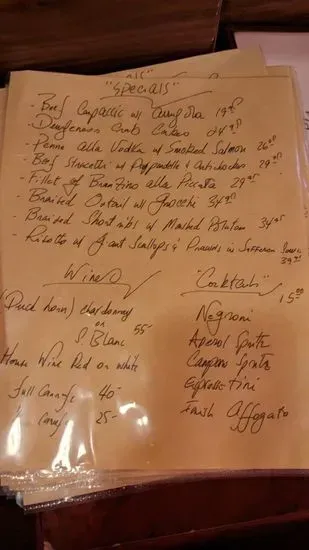 "Specials"
- Beef Carpaccio w/ Arugola 19.00
- Dungeness Crab Cakes 24.00
- Penne alla Vodka w/ Smoked Salmon 26.00
- Beef Straccetti w/ Pappardelle & Artichokes 29.00
- Fillet of Branzino alla Piccata 29.00
- Braised Oxtail w/ Gnocchi 34.00
- Braised Short ribs w/ Mashed Potatoes 34.00
- Risotto w/ giant Scallops & Prawns in Saffron Sauce
39.00
Wines
"Cocktails"
15.00
(Duck horn) chardonnay
or
S. Blanc 55-
House Wine Red or white
full Carafe 40-
1/2 Carafe 25-
Negroni
Aperol Spritz
Campari Spritz
Espresstini
Irish Affogato